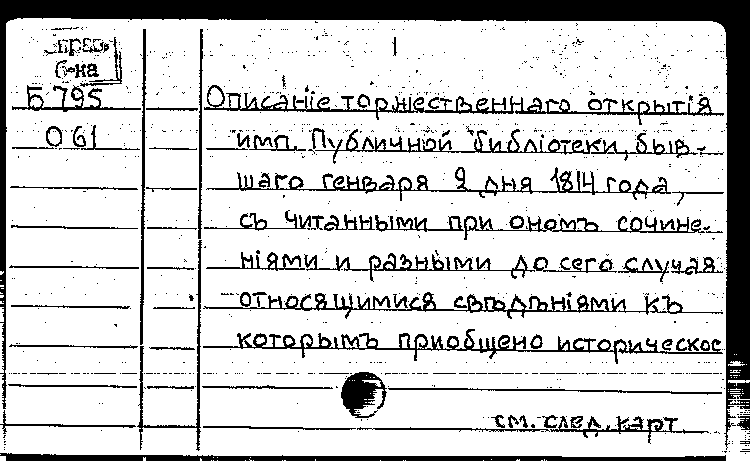 1
Справ.
б-ка
Б 795
О 61
Описаніе торжественнаго открытія
имп. Публичной библіотеки, быв-
шаго генваря 2 дня 1814 года,
съ читанными при ономъ сочине-
ніями и разными до сего случая
относящимися свѣдѣніями къ
которымъ приобщено историческое
см. след. карт.